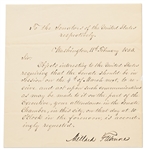 To the Senators of the United States
respectfully.
Washington, 11th February 1853.
Sir:
requiring that the Senate should be in
session on the 4th of March next, to re-
ceive and act upon such communications
as may be made to it on the part of the
Executive, your attendance in the Senate
Chamber, in this city, on that day at
o'clock in the forenoon is accord-
ingly requested.
Millard Fillmore